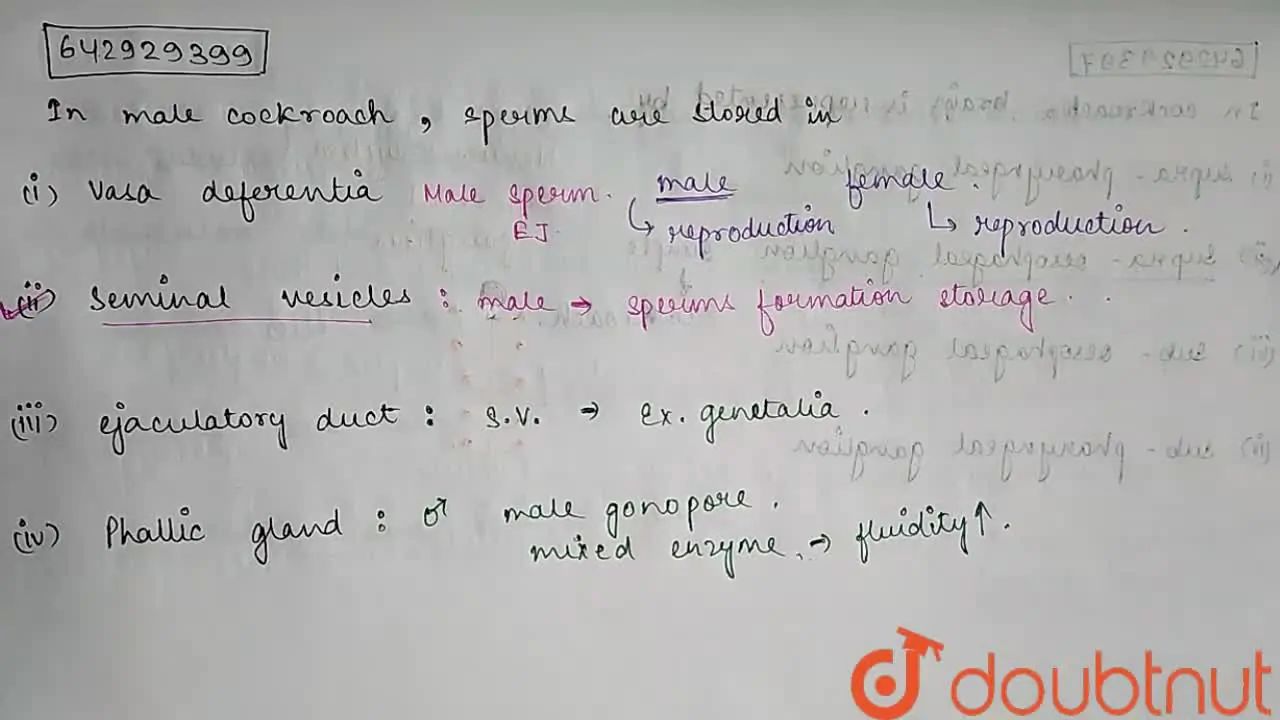 642929399
In male cockroach, sperms are stored in
(i) Vasa deferentia Male sperm. male female.
EJ. ↳ reproduction ↳ reproduction.
(ii) Seminal vesicles : male → sperms formation storage.
(iii) ejaculatory duct : S.V. → Ex. genetalia.
(iv) Phallic gland : ♂ male gonopore.
mixed enzyme. → fluidity↑.
doubtnut